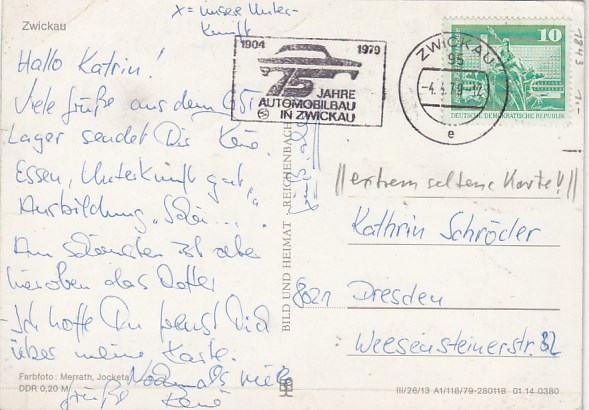 x = unsere Unter-
kunft
Zwickau
Hallo Katrin!
Viele Grüße aus dem GST
Lager sendet Dir René.
Essen, Unterkunft gut,
Ausbildung
Am schönsten ist aber
hieroben das Wetter
- Ich hoffe Du freust Dich
über meine Karte.
Nochmals viele
Grüße René
Farbfoto: Merrath, Jocketa
DDR 0,20 M
1904 1979
75 JAHRE
AUTOMOBILBAU
IN ZWICKAU
ZWICKAU
95
e
10
DEUTSCHE DEMOKRATISCHE REPUBLIK
1843
1,-
BILD UND HEIMAT REICHENBACH
||extrem seltene Karte!!||
Kathrin Schröder
8021 Dresden
Weesensteinerstr. 32
III/26/13 A1/118/79-280118 01.14.0380